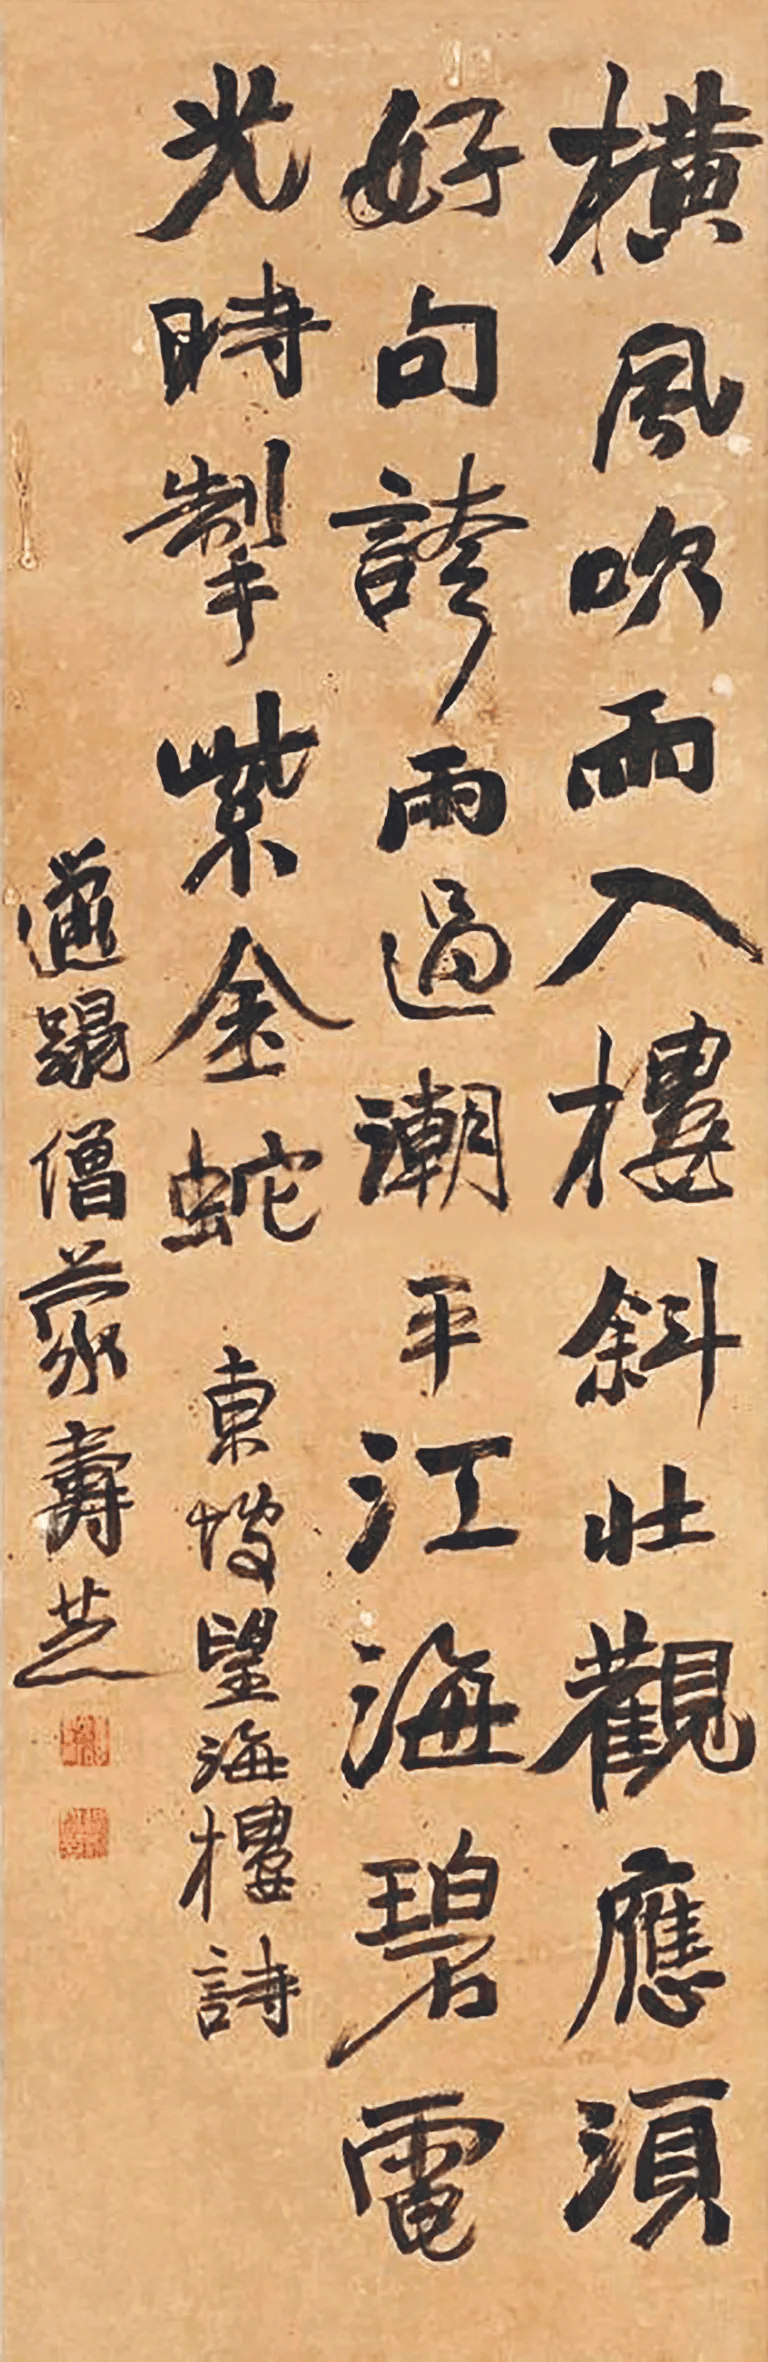 橫風吹雨入樓斜壯觀應須
好句誇雨過潮平江海碧電
光時掣紫金蛇 東坡望海樓詩
僧 壽芝